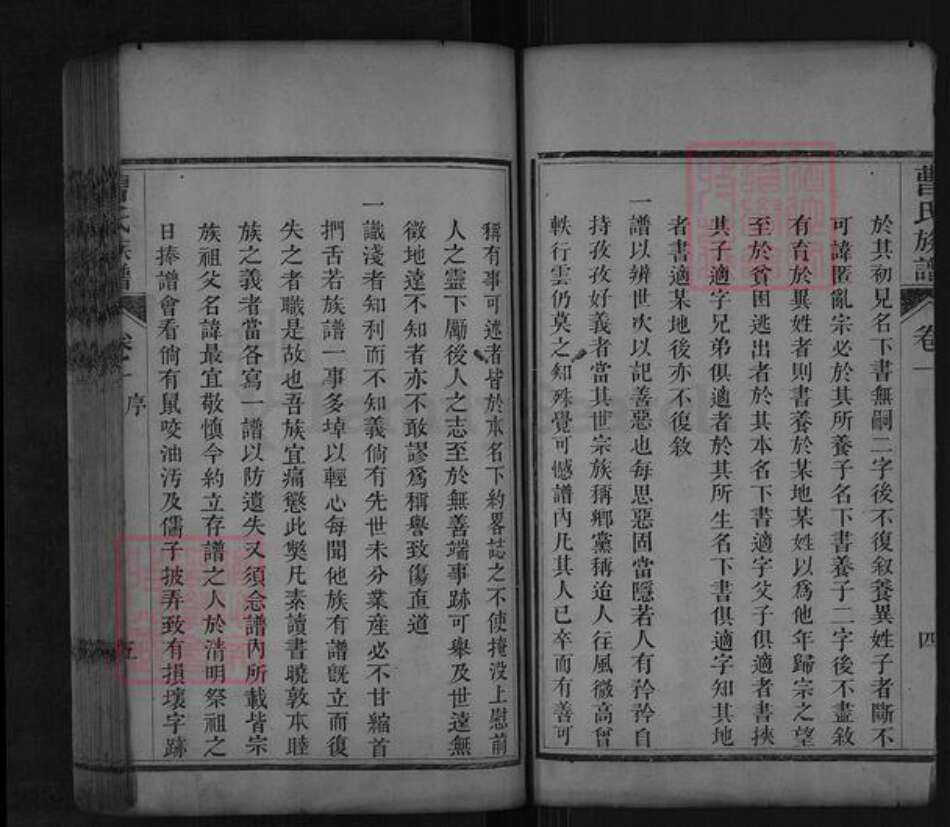 曹氏族譜
卷一
四
於其初見名下書無嗣二字後不復敘養異姓子者斷不
可諱匿亂宗必於其所養子名下書養子二字後不盡敘
有育於異姓者則書養於某地某姓以為他年歸宗之望
至於貧困逃出者於其本名下書適字父子俱適者書挾
其子適字兄弟俱適者於其所生名下書俱適字知其地
者書適某地後亦不復敘
一譜以辨世次以記善惡也每思惡固當隱若人有矜矜自
持孜孜好義者當其世宗族稱鄉黨稱迨人往風微高曾
軼行雲仍莫之知殊覺可憾譜內凡其人已卒而有善可
稱有事可述者皆於本名下約畧誌之不使掩沒上慰前
人之靈下厲後人之志至於無善端事跡可舉及世遠無
徵地遠不知者亦不敢謬為稱譽致傷直道
一識淺者知利而不知義倘有先世未分業產必不甘縮首
捫舌若族譜一事多埠以輕心每聞他族有譜旣立而復
失之者職是故也吾族宜痛懲此獘凡素讀書曉敦本睦
族之義者當各寫一譜以防遺失又須念譜內所載皆宗
族祖父名諱最宜敬慎今約立存譜之人於清明祭祖之
日捧譜會看倘有鼠咬油汚及儒子披弄致有損壞字跡
曹氏族譜
卷一
序
五